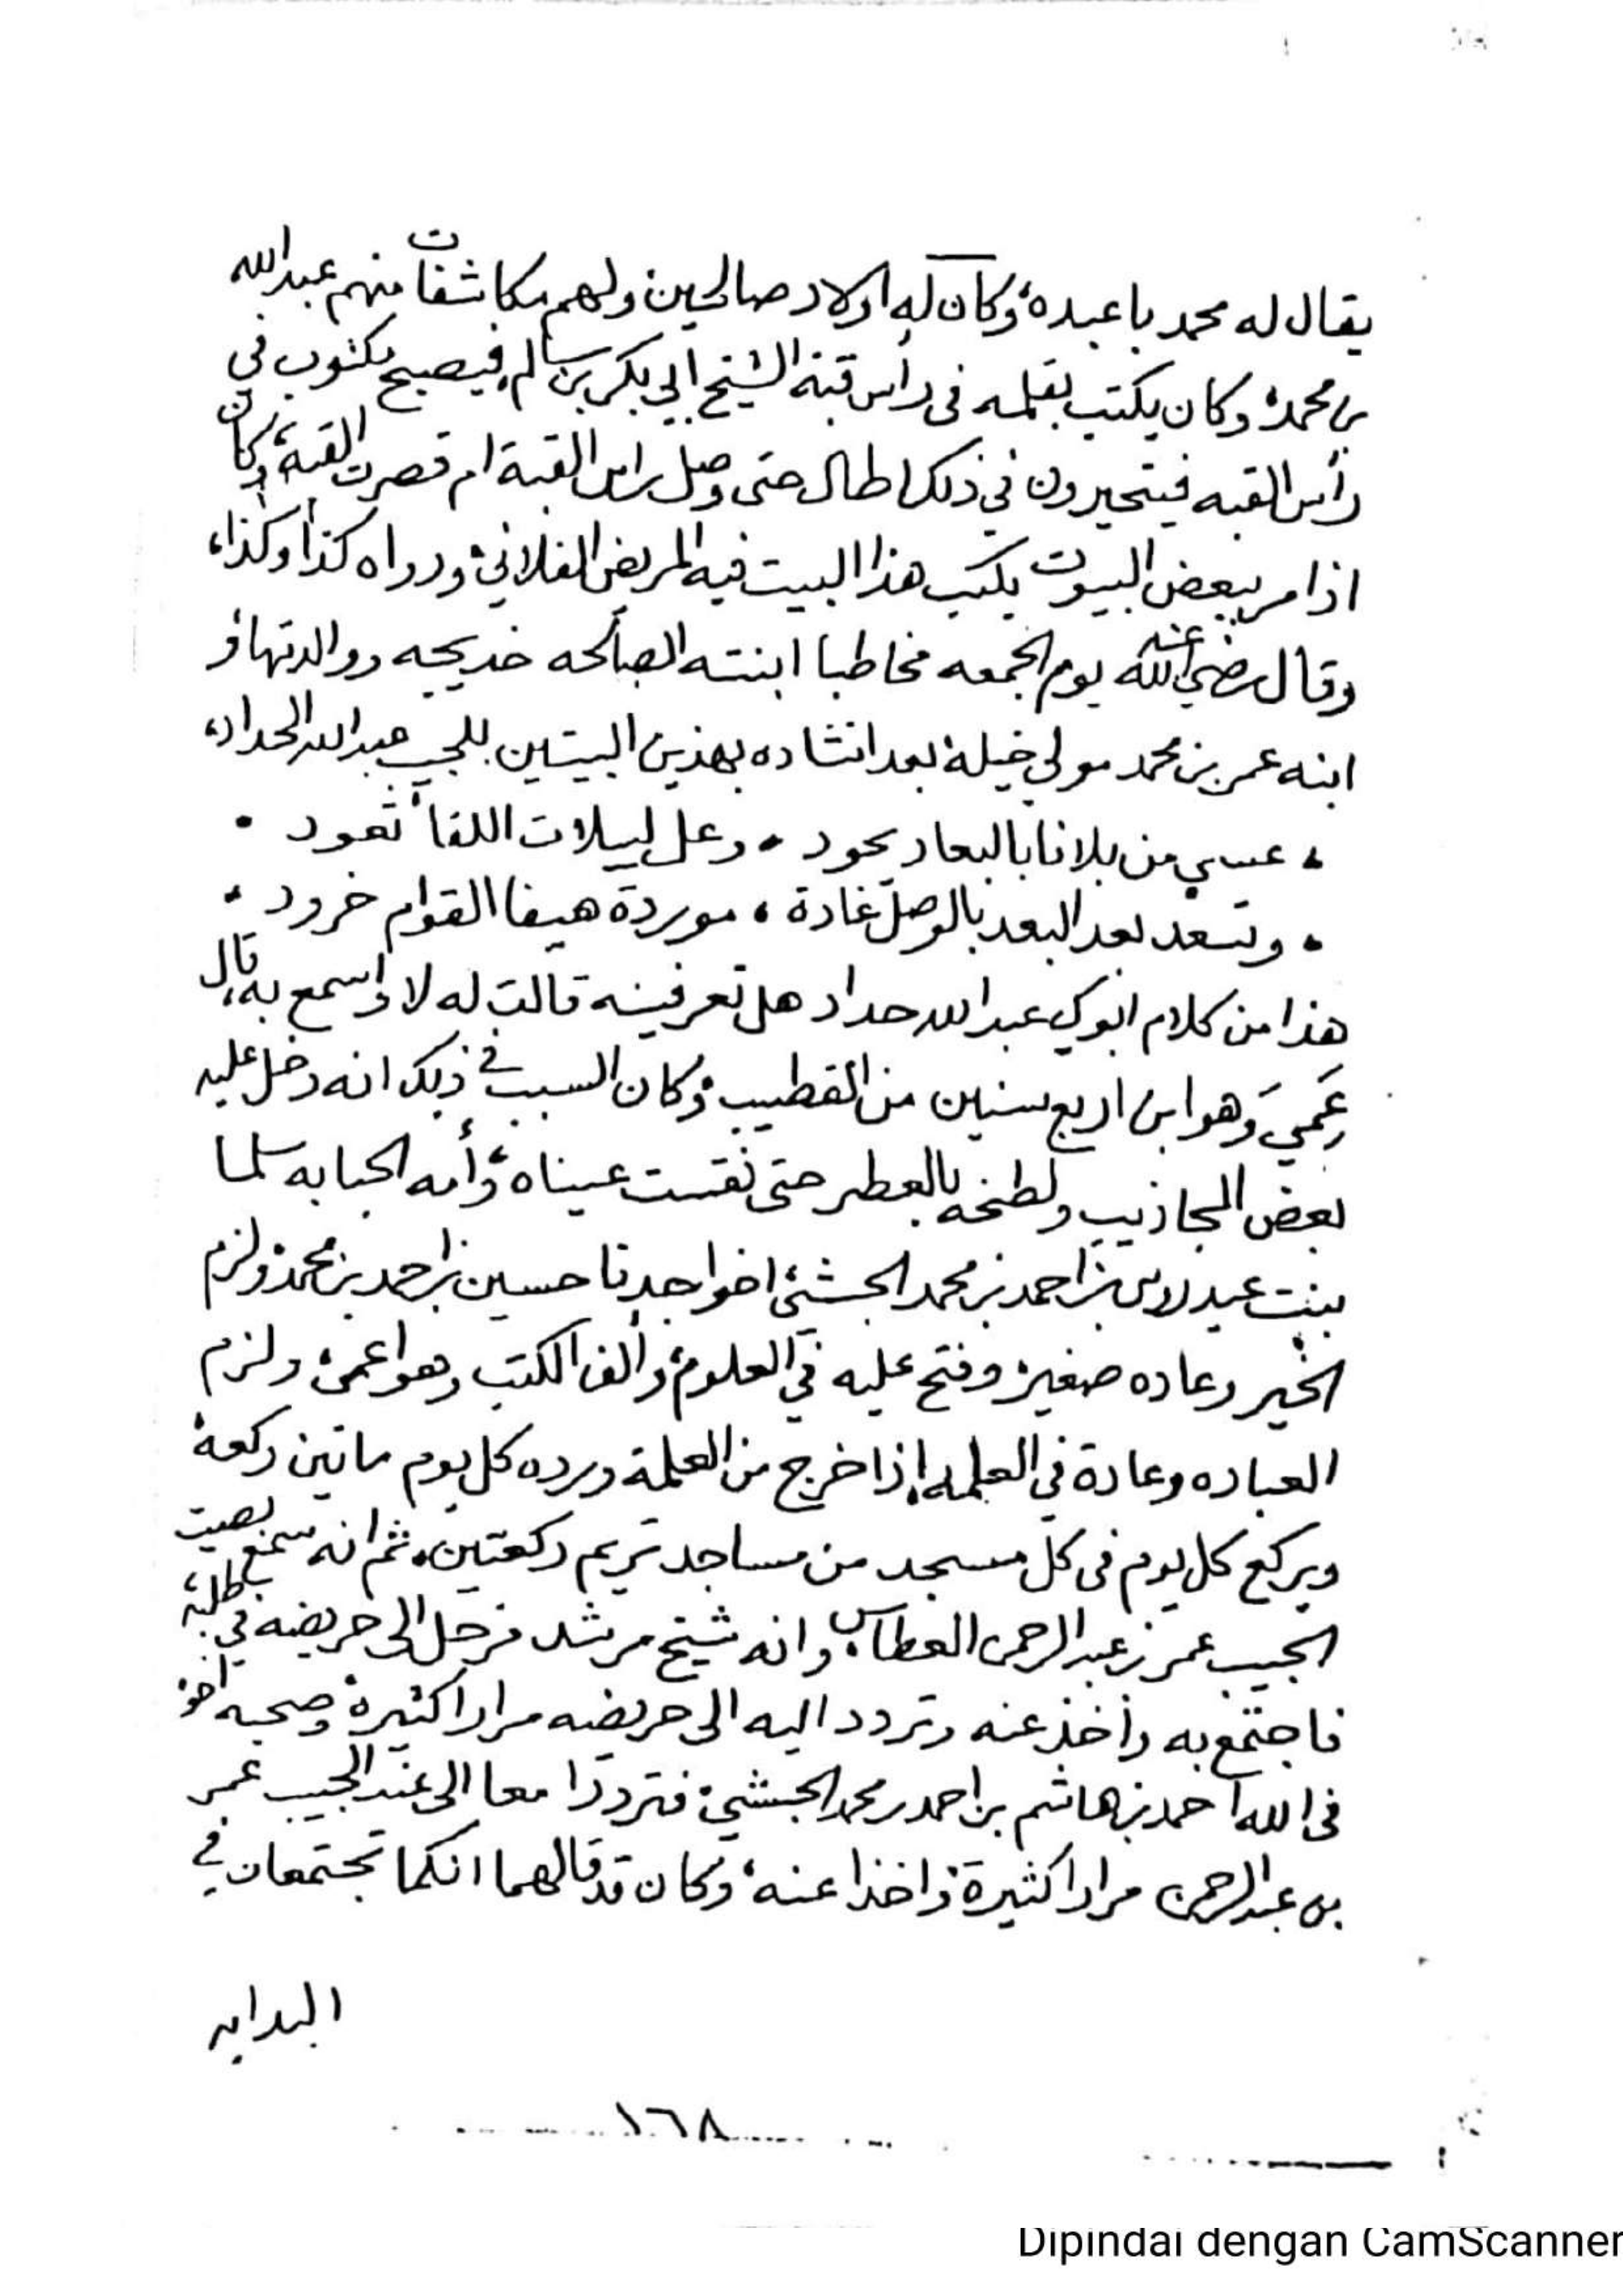 يقال له محمد باعبده، وكان له اولاد صالحين ولهم مكاشفات منهم عبدالله
بن محمد، وكان يكتب بقلمه فى رأس قبة الشيخ ابي بكر بن سالم، فيصبح مكتوب في
رأس القبه فيتحيرون في ذلك اطال حتى وصل راس القبة ام قصرت القبة، وكان
اذا مر ببعض البيوت يكتب هذا البيت فيه المريض الفلاني، ودواه كذا وكذا،
وقال رضي الله عنه يوم الجمعه مخاطبا ابنته الصالحه خديجه ووالدتها و
ابنه عمر بن محمد مولى خيلة بعد انشاده بهذين البيتين للحبيب عبدالله الحداد،
• عسى من بلانا بالبعاد يجود • وعل لييلات اللقا تعود •
• وتسعد بعد البعد بالوصل غادة ، موردة هيفا القوام خرود •
هذا من كلام ابوك عبدالله حداد هل تعرفينه قالت له لا واسمع به، قال
عَمي وَهو ابن اربع سنين من القطيب، وكان السبب في ذلك انه دخل عليه
بعض المجاذيب ولطخه بالعطر حتى نقست عيناه، وأمه الحبابه سلما
بنت عيدروس بن احمد بن محمد الحبشي، اخو اجدنا حسين بن احمد بن محمد، ولزم
الخير وعاده صغير، وفتح عليه في العلوم، وألف الكتب وهو اعمى، ولزم
العباده وعادة في العلمه، إذا خرج من العلمة ورده كل يوم ماتين ركعة
ويركع كل يوم فى كل مسجد من مساجد تريم ركعتين، ثم انه سمع بصيت
الحبيب عمر بن عبدالرحمن العطاس، وانه شيخ مرشد فرحل الى حريضه في طلبه،
فاجتمع به وأخذ عنه وتردد اليه الى حريضه مرارا كثيرة، وصحبه اخوه
فى الله احمد بن هاشم بن احمد بن محمد الحبشي، فترددا معا الى عند الحبيب عمر
بن عبدالرحمن مرارا كثيرة، واخذا عنه، وكان قد قال لهما انكما تجتمعان في
البدايه
١٦٨
Dipindai dengan CamScanner